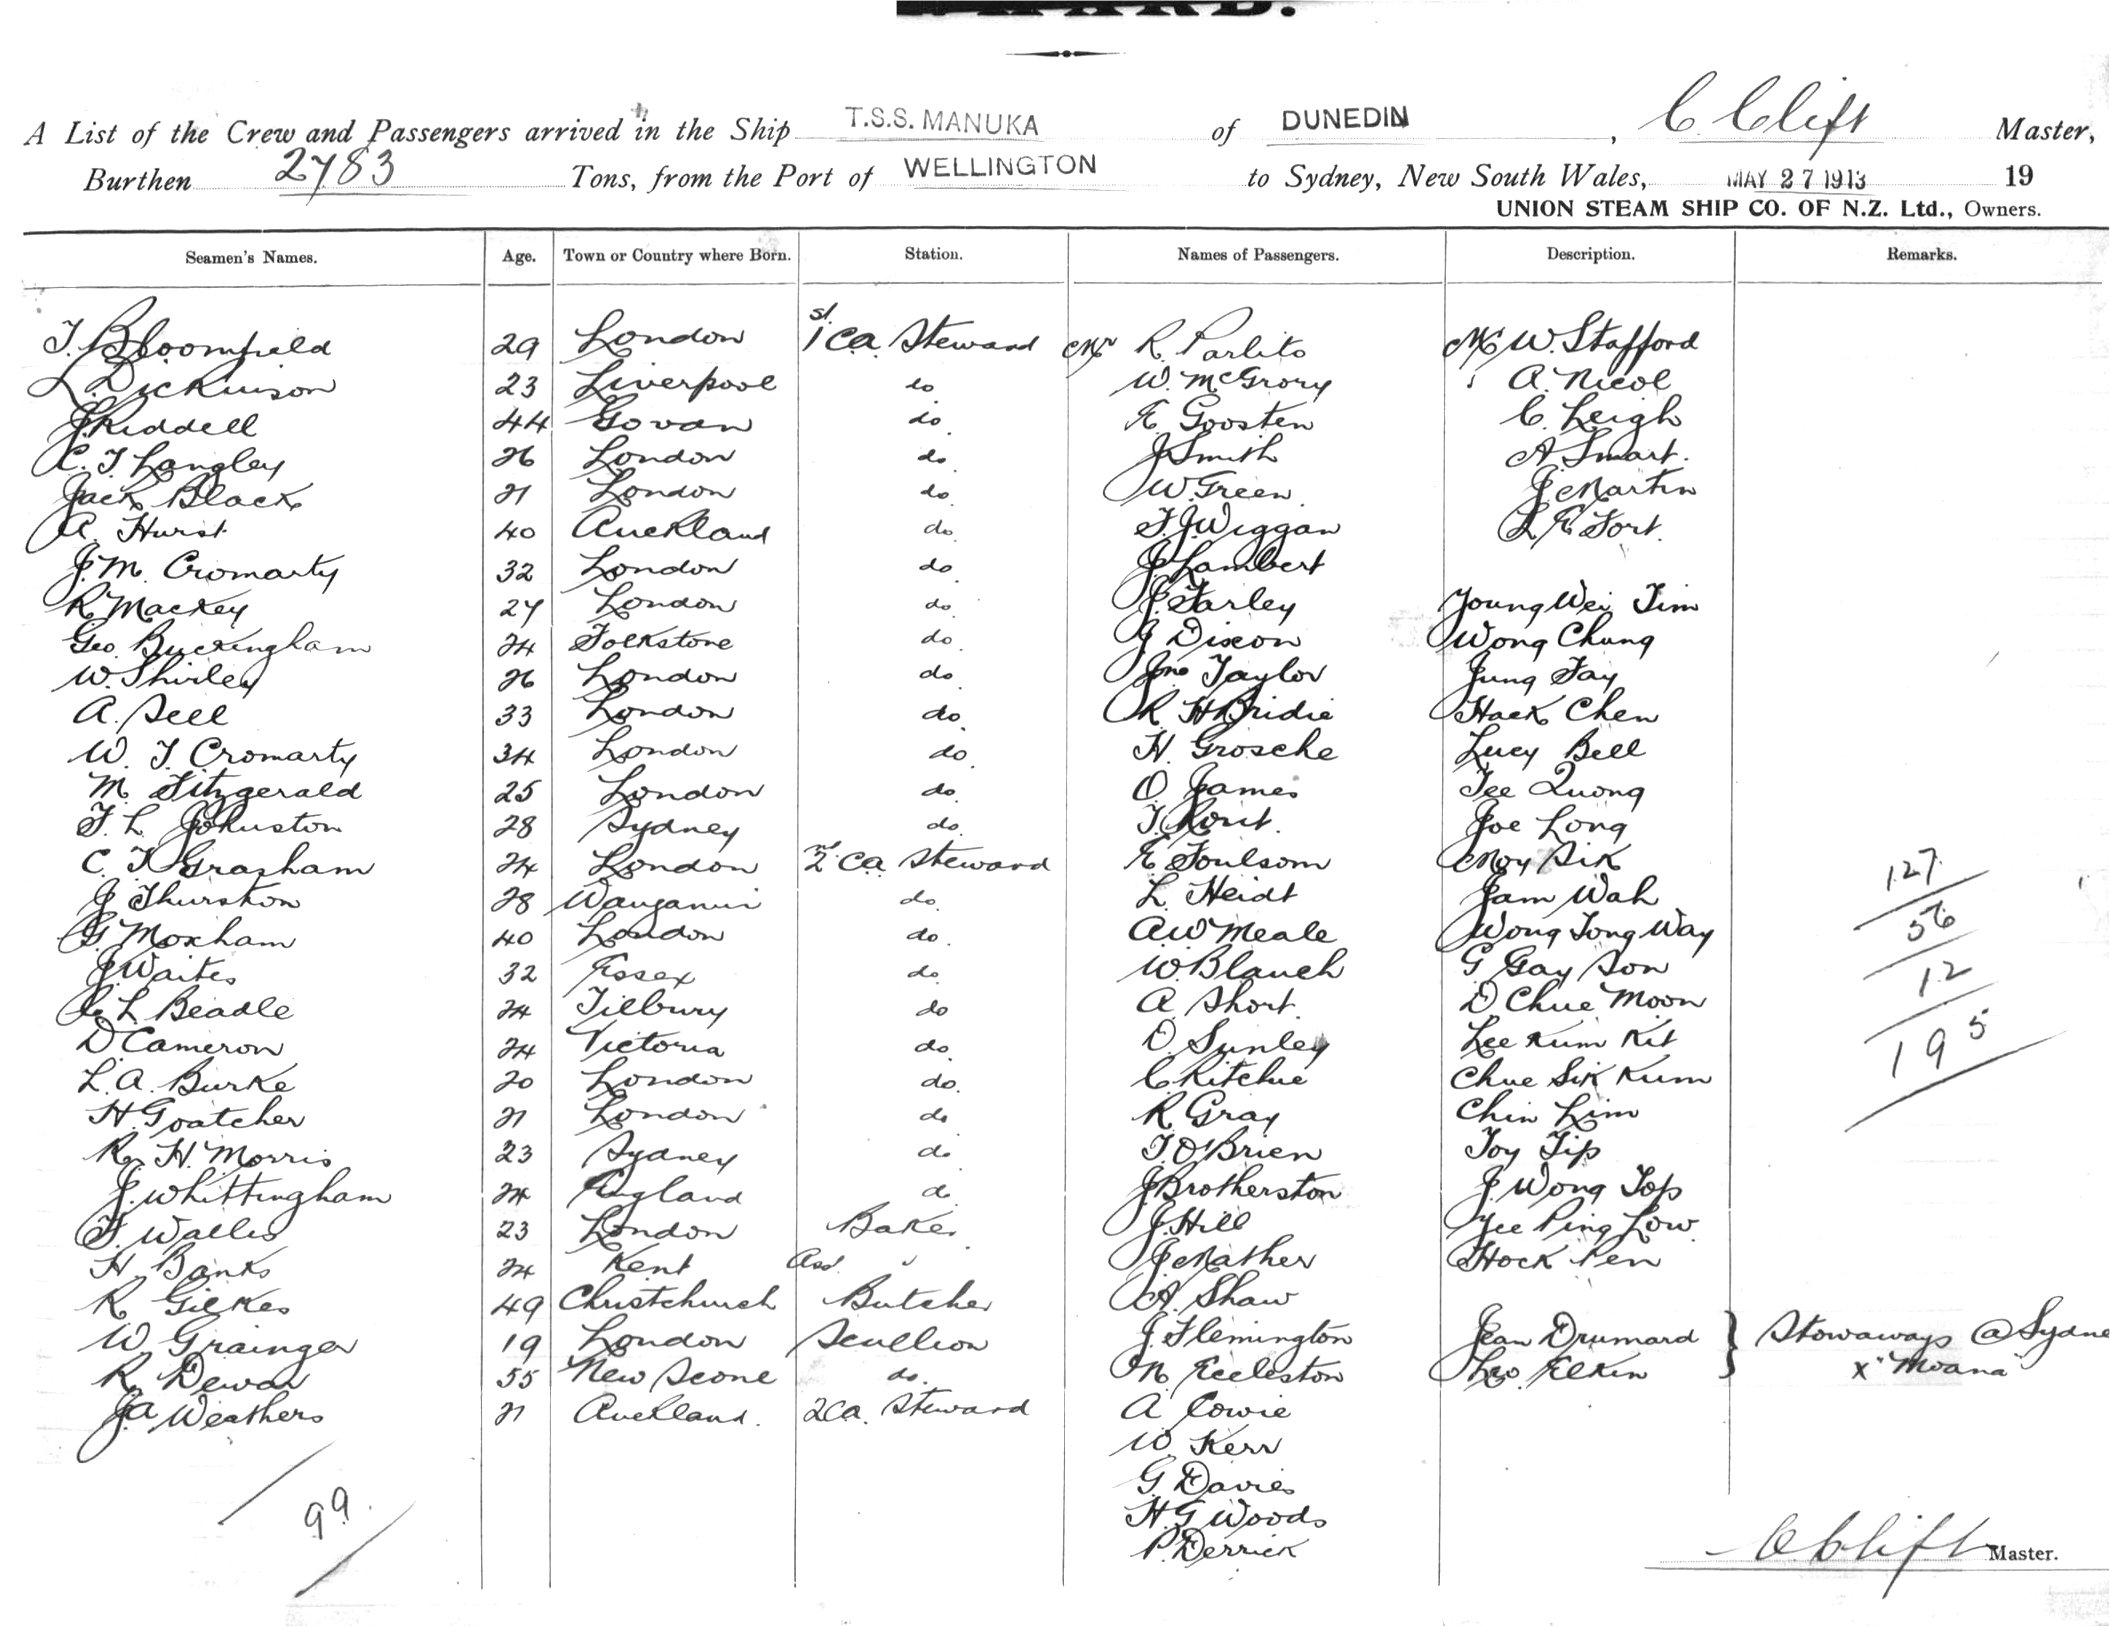 A List of the Crew and Passengers arrived in the Ship T.S.S. MANUKA of DUNEDIN, C Clift Master,
Burthen 2783 Tons, from the Port of WELLINGTON to Sydney, New South Wales, MAY 27 1913 19
UNION STEAM SHIP CO. OF N.Z. Ltd., Owners.
Seamen's Names. Age. Town or Country where Born. Station. Names of Passengers. Description. Remarks.
T. Bloomfield 29 London 1st Ca. Steward Mr R. Parlito Mr W. Stafford
L. Dickinson 23 Liverpool do W. McGrory A. Nicol
J. Riddell 44 Govan do. E. Goosten C. Leigh
C. T Langley 26 London do. J Smith A. Smart.
Jack Black 21 London do. W. Green J. Martin
A. Hurst 40 Auckland do. F. J. Wiggan L E Fort.
J. M. Cromarty 32 London do. J. Lambert
R. Mackey 27 London do. J. Farley Young Wei Tim
Geo. Buckingham 24 Folkstone do. J Dixon Wong Chung
W. Shirley 26 London do. Jno Taylor Jung Fay
A. Sell 33 London do. R H Bridie Hack Chen
W. T. Cromarty 34 London do. H. Grosche Lucy Bell
M. Fitzgerald 25 London do. O. James Tee Quong
F. L. Johnston 28 Sydney do. T. Rout. Joe Long
C. T. Grasham 24 London 2nd Ca. Steward E. Foulsom Moy Sik
J Thurston 28 Wanganui do. L Heidt Jam Wah
G. Moxham 40 London do. A. W Meale Wong Tong Way
J Waites 32 Essex do. W. Blanch G Gay Son
C. L Beadle 24 Tilbury do A. Short. D Chue Moon
D. Cameron 24 Victoria do. O. Sunley Lee Kum Kit
L. A. Burke 20 London do. C Ritchie Chue Sik Kum
H. Goatcher 21 London do R. Gray Chin Lim
R. H. Morris 23 Sydney do T. O'Brien Toy Tip
J. Whittingham 24 England do J Brotherston J. Wong Top
F. Wallis 23 London Baker J. Hill Yee Ping Low
H Banks 24 Kent Asst. " J Mather Hock Pen
R Gilkes 49 Christchurch Butcher A. Shaw
W Grainger 19 London Scullion J. Flemington Jean Drumard } Stowaways @ Sydne
R. Dewar 55 New Scone do. N Eccleston Leo. Elkin x "Moana"
J. A Weathers 21 Auckland. 2 Ca. Steward A Cowie
W. Kerr
G. Davies
H G Woods
P. Derrick
99.
127
56
12
195
C Clift Master.